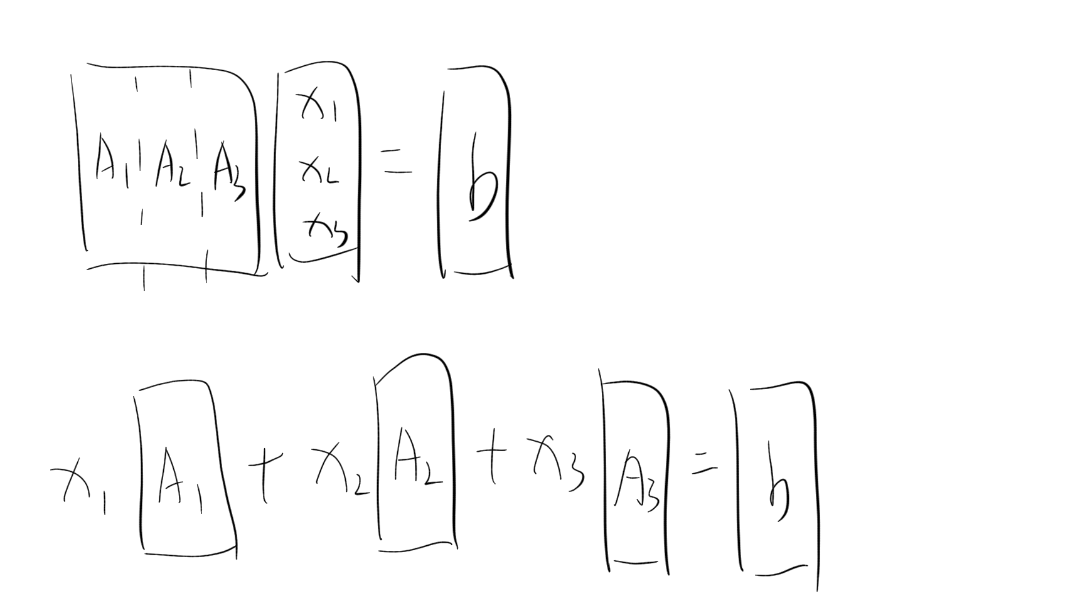 [A₁ ¦ A₂ ¦ A₃] [x₁ x₂ x₃] = [b]
x₁ [A₁] + x₂ [A₂] + x₃ [A₃] = [b]